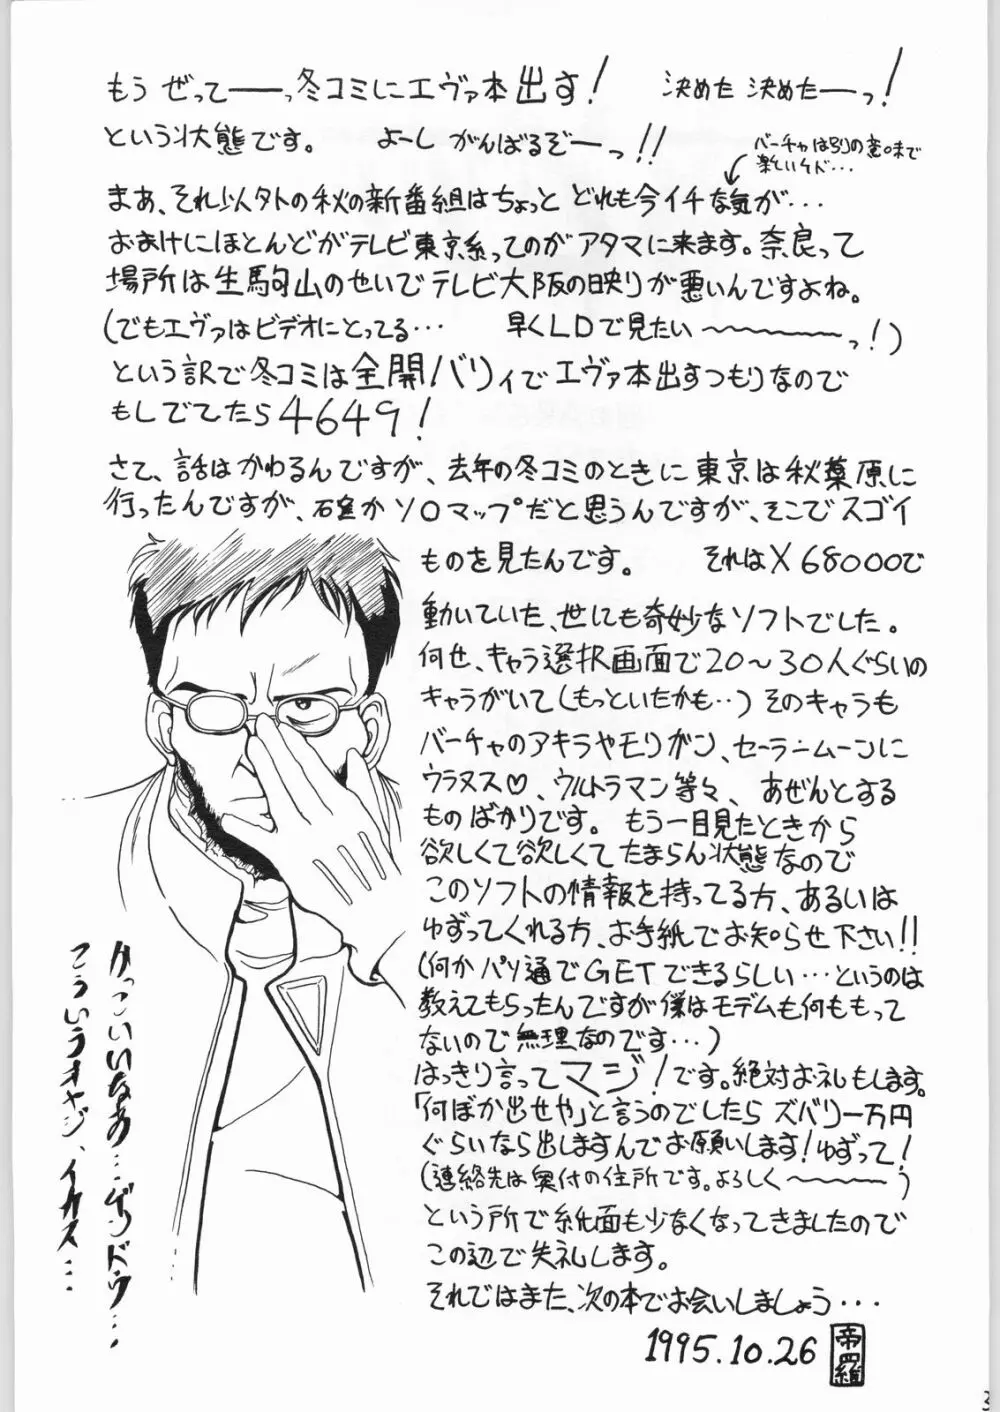 もう ぜってーーっ冬コミにエヴァ本出す! 決めた 決めたーっ!
という状態です。 よーし がんばるぞーっ!!
バーチャは別の意味で
楽しいケド・・・
まあ、それ以外の秋の新番組はちょっと どれも今イチな気が・・・
おまけにほとんどがテレビ東京系ってのがアタマに来ます。奈良って
場所は生駒山のせいでテレビ大阪の映りが悪いんですよね。
(でもエヴァはビデオにとってる・・・ 早くLDで見たい〜〜〜〜〜っ!)
という訳で冬コミは全開バリィでエヴァ本出すつもりなので
もしでてたら4649!
さて、話はかわるんですが、去年の冬コミのときに東京は秋葉原に
行ったんですが、確かソロマップだと思うんですが、そこでスゴイ
ものを見たんです。 それはX68000で
動いていた、世にも奇妙なソフトでした。
何せ、キャラ選択画面で20〜30人ぐらいの
キャラがいて(もっといたかも・・) そのキャラも
バーチャのアキラやモリガン、セーラームーンに
ウラヌス♡、ウルトラマン等々、あぜんとする
ものばかりです。 もう一目見たときから
欲しくて欲しくてたまらん状態なので
このソフトの情報を持ってる方、あるいは
ゆずってくれる方、お手紙でお知らせ下さい!!
(何かパソ通でGETできるらしい・・・というのは
教えてもらったんですが僕はモデムも何ももって
ないので無理なのです・・・)
はっきり言ってマジ!です。絶対お礼もします。
「何ぼか出せや」と言うのでしたら ズバリ一万円
ぐらいなら出しますんでお願いします!ゆずって!
(連絡先は奥付の住所です。よろしく〜〜〜〜)
という所で紙面も少なくなってきましたので
この辺で失礼します。
それではまた、次の本でお会いしましょう・・・
1995.10.26 帝羅
かっこいいなあ・・・ゲンドウ・・・
こういうオヤジ、イカス・・・
3